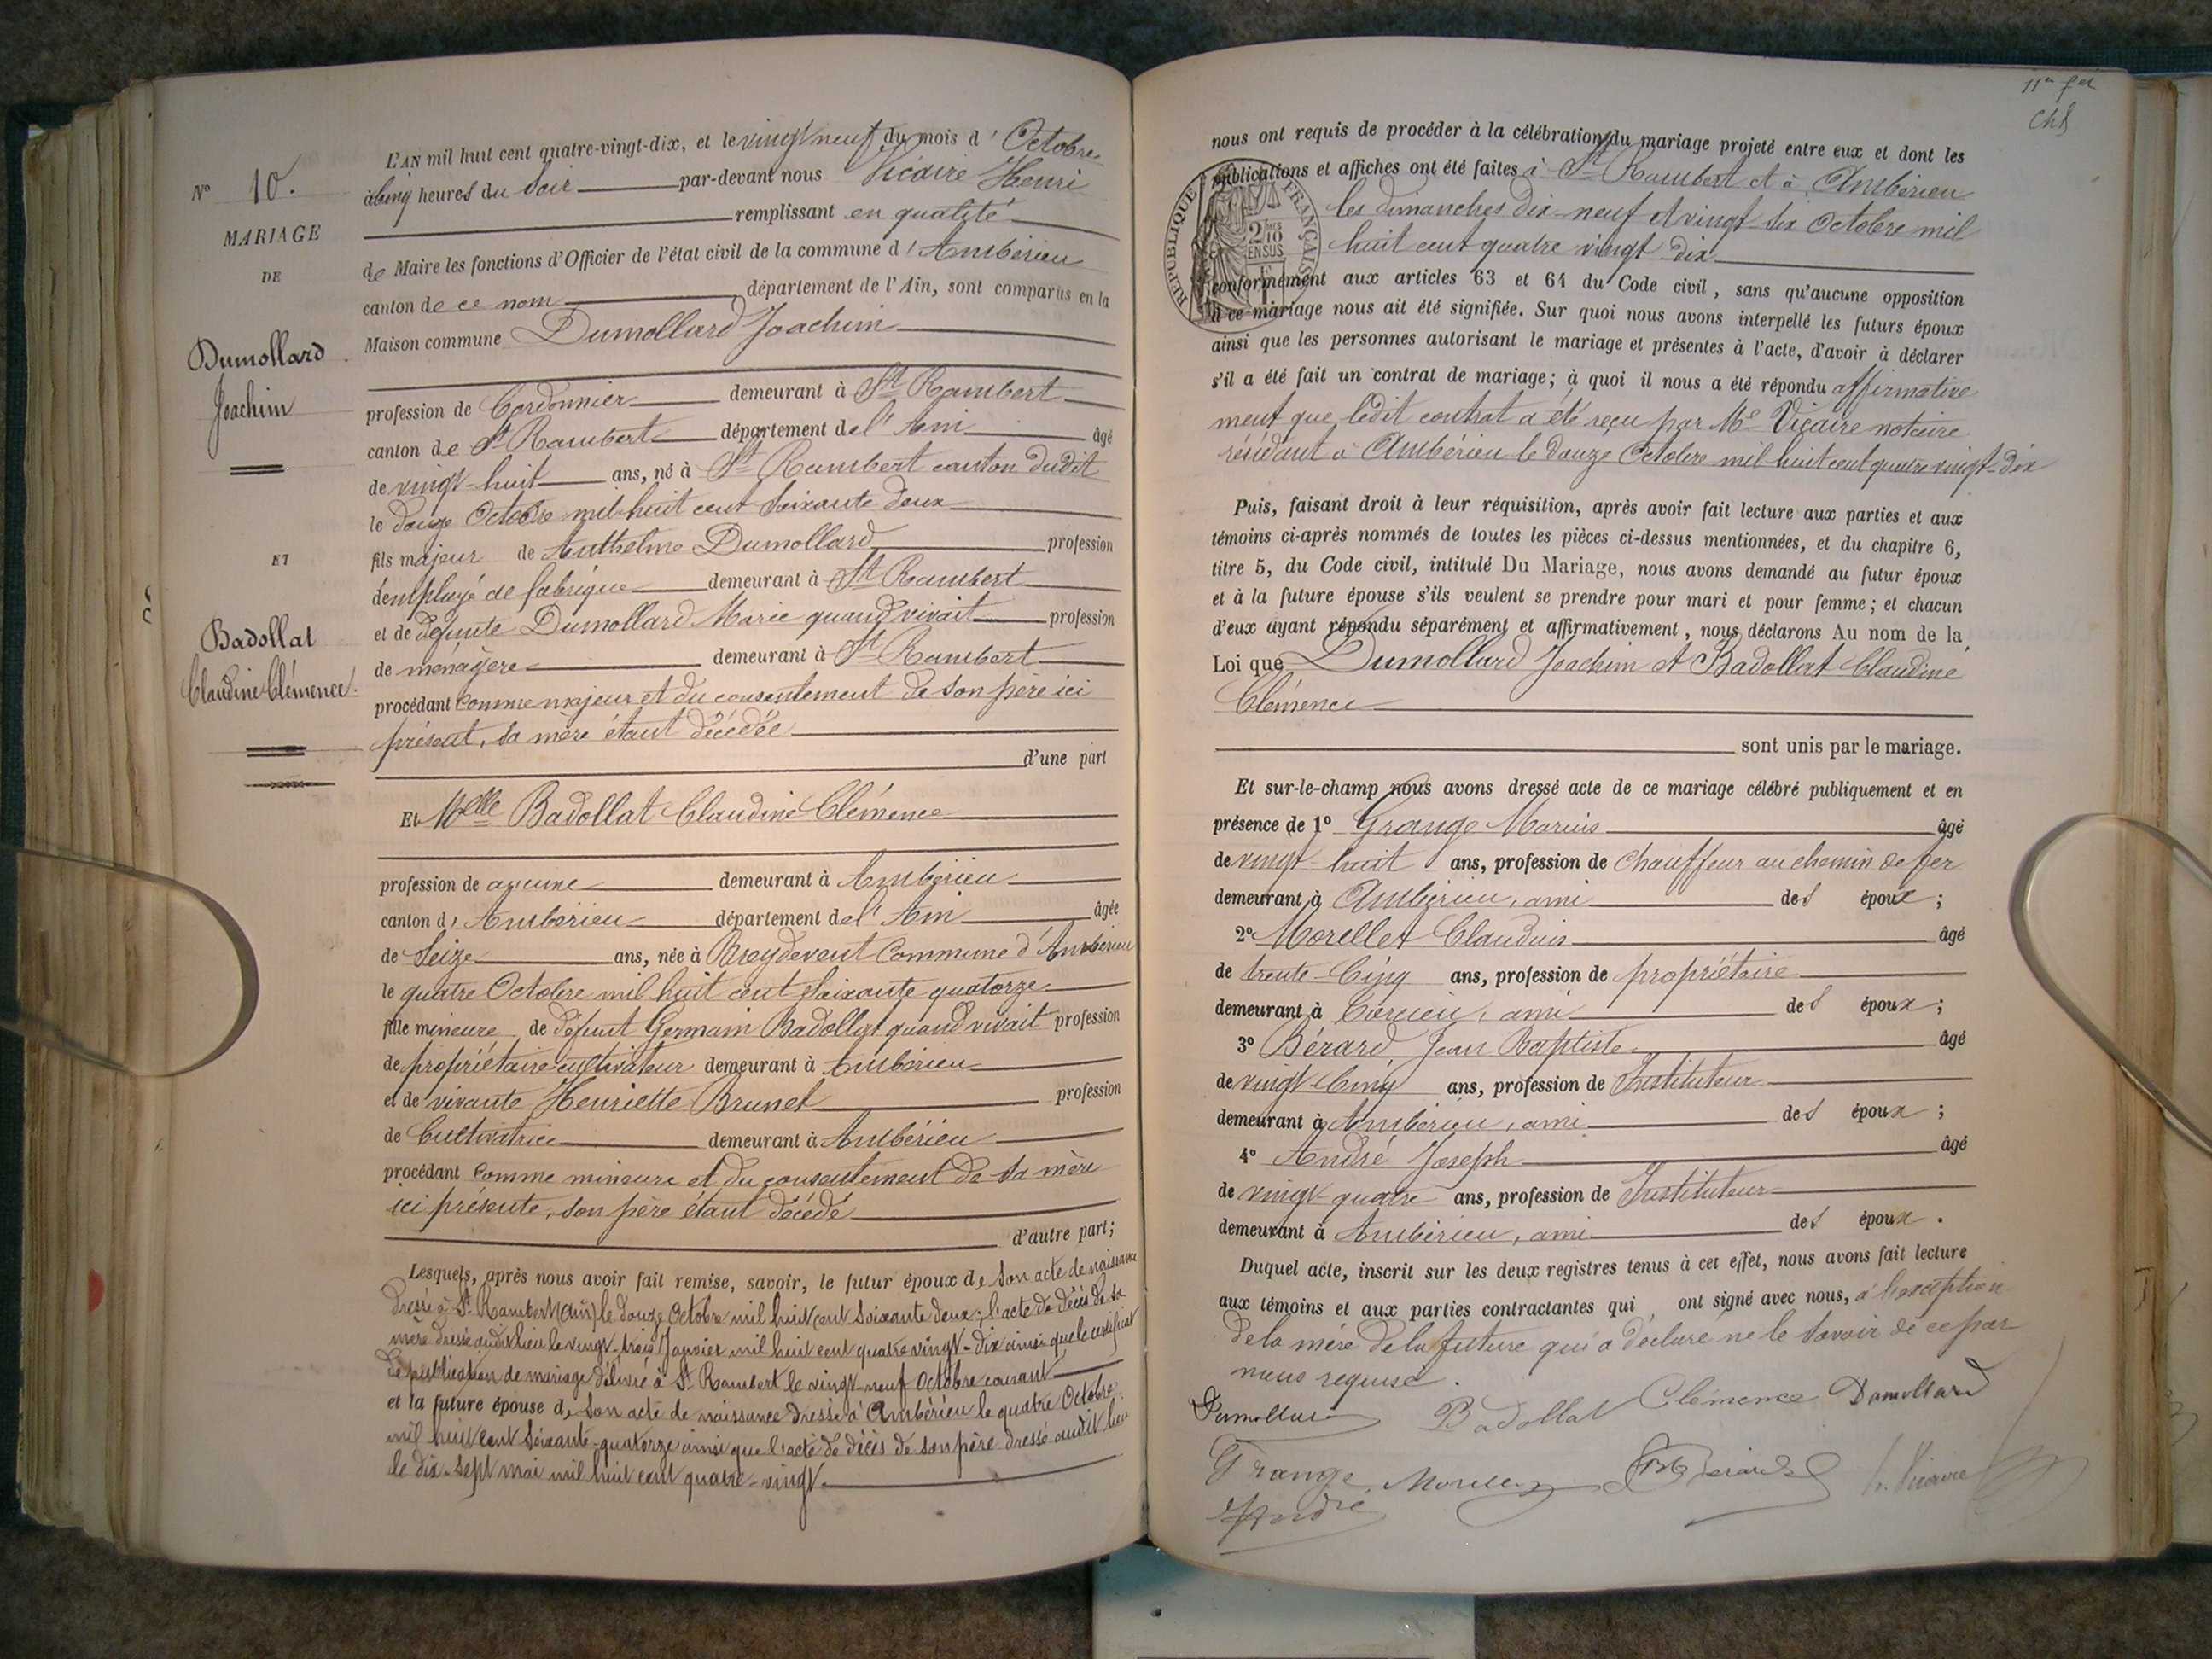 N° 10.
MARIAGE
DE
Dumollard
Joachim
ET
Badollat
Claudine Clémence.
L'AN mil huit cent quatre-vingt-dix, et le vingt neuf du mois d'Octobre
à cinq heures du Soir par-devant nous Vicaire Henri
remplissant en qualité
de Maire les fonctions d'Officier de l'état civil de la commune d'Ambérieu
canton de ce nom département de l'Ain, sont comparus en la
Maison commune Dumollard Joachim
profession de Cordonnier demeurant à St Rambert
canton de St Rambert département de l'Ain âgé
de vingt-huit ans, né à St Rambert canton dudit
le douze Octobre mil huit cent soixante deux
fils majeur de Anthelme Dumollard profession
d'employé de fabrique demeurant à St Rambert
et de défunte Dumollard Marie quand vivait profession
de ménagère demeurant à St Rambert
procédant comme majeur et du consentement de son père ici
présent, sa mère étant décédée
d'une part
Et Melle Badollat Claudine Clémence
profession de aucune demeurant à Ambérieu
canton d'Ambérieu département de l'Ain âgée
de Seize ans, née à Breydevent Commune d'Ambérieu
le quatre Octobre mil huit cent soixante-quatorze
fille mineure de défunt Germain Badollat quand vivait profession
de propriétaire-cultivateur demeurant à Ambérieu
et de vivante Henriette Brunet profession
de Cultivatrice demeurant à Ambérieu
procédant comme mineure et du consentement de sa mère
ici présente, son père étant décédé
d'autre part;
Lesquels, après nous avoir fait remise, savoir, le futur époux de son acte de naissance
dressé à St Rambert (Ain) le douze Octobre mil huit cent soixante deux; l'acte de décès de sa
mère dressé audit lieu le vingt-trois Janvier mil huit cent quatre vingt-dix ainsi que le certificat
de publication de mariage délivré à St Rambert le vingt-neuf Octobre courant
et la future épouse de son acte de naissance dressé à Ambérieu le quatre Octobre
mil huit cent soixante-quatorze ainsi que l'acte de décès de son père dressé audit lieu
le dix-sept mai mil huit cent quatre-vingt.
11e fet
nous ont requis de procéder à la célébration du mariage projeté entre eux et dont les
publications et affiches ont été faites à St Rambert et à Ambérieu
les dimanches dix-neuf et vingt-six Octobre mil
huit cent quatre vingt dix
RÉPUBLIQUE FRANÇAISE
conformément aux articles 63 et 64 du Code civil, sans qu'aucune opposition
à ce mariage nous ait été signifiée. Sur quoi nous avons interpellé les futurs époux
ainsi que les personnes autorisant le mariage et présentes à l'acte, d'avoir à déclarer
s'il a été fait un contrat de mariage; à quoi il nous a été répondu affirmative
ment que ledit contrat a été reçu par Me Vicaire notaire
résidant à Ambérieu le douze Octobre mil huit cent quatre vingt-dix
Puis, faisant droit à leur réquisition, après avoir fait lecture aux parties et aux
témoins ci-après nommés de toutes les pièces ci-dessus mentionnées, et du chapitre 6,
titre 5, du Code civil, intitulé Du Mariage, nous avons demandé au futur époux
et à la future épouse s'ils veulent se prendre pour mari et pour femme; et chacun
d'eux ayant répondu séparément et affirmativement, nous déclarons Au nom de la
Loi que Dumollard Joachim et Badollat Claudine
Clémence
sont unis par le mariage.
Et sur-le-champ nous avons dressé acte de ce mariage célébré publiquement et en
présence de 1° Grange Marius âgé
de vingt-huit ans, profession de Chauffeur au chemin de fer
demeurant à Ambérieu, ami des époux;
2° Morellet Claudius âgé
de trente-Cinq ans, profession de propriétaire
demeurant à Corcieu, ami des époux;
3° Bérard Jean Baptiste âgé
de vingt-Cinq ans, profession de Instituteur
demeurant à Ambérieu, ami des époux;
4° André Joseph âgé
de vingt-quatre ans, profession de Instituteur
demeurant à Ambérieu, ami des époux.
Duquel acte, inscrit sur les deux registres tenus à cet effet, nous avons fait lecture
aux témoins et aux parties contractantes qui ont signé avec nous, à l'exception
de la mère de la future qui a déclaré ne le savoir de ce par
nous requise.
Dumollard Badollat Clémence Dumollard
Grange Morellet Bérard h. Vicaire
André